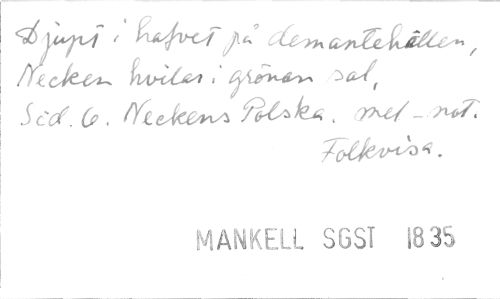 Djupt i hafvet på demantehällen,
Necken hvilar i grönan sal,
Sid. 6. Neckens Polska. mel-not.
Folkvisa.
MANKELL SGST 1835